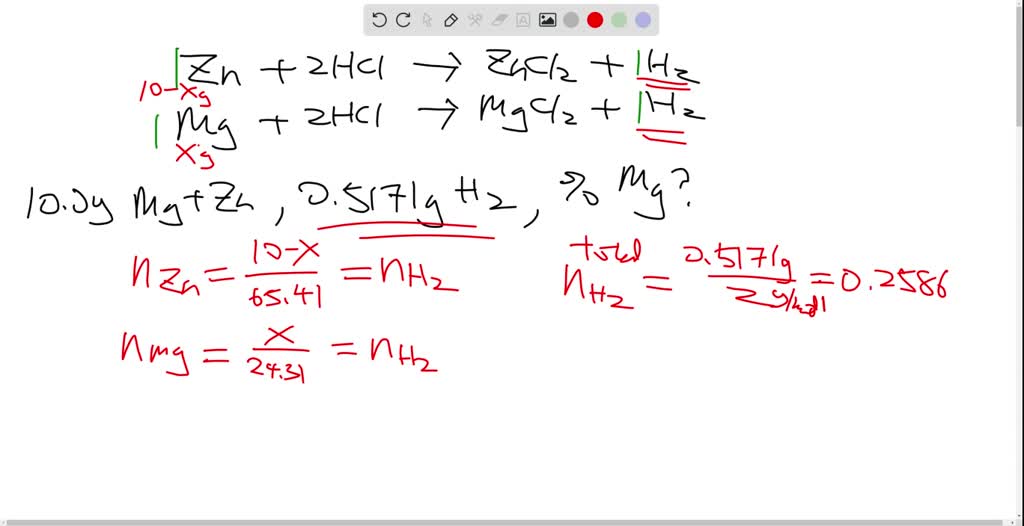 Zn + 2HCl → ZnCl2 + 1H2
10-xg
1 Mg + 2HCl → MgCl2 + 1H2
xg
10.0g Mg+Zn, 0.5171g H2, % Mg?
nZn = 10-x / 65.41 = nH2
total nH2 = 0.5171g / 2 g/mol = 0.2586
nmg = x / 24.31 = nH2